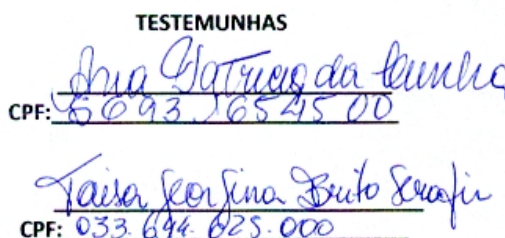 TESTEMUNHAS
Ana Patricia da Cunha
CPF: 66931654500
Taisa Georgina Brito Serafir
CPF: 033.644.625.000